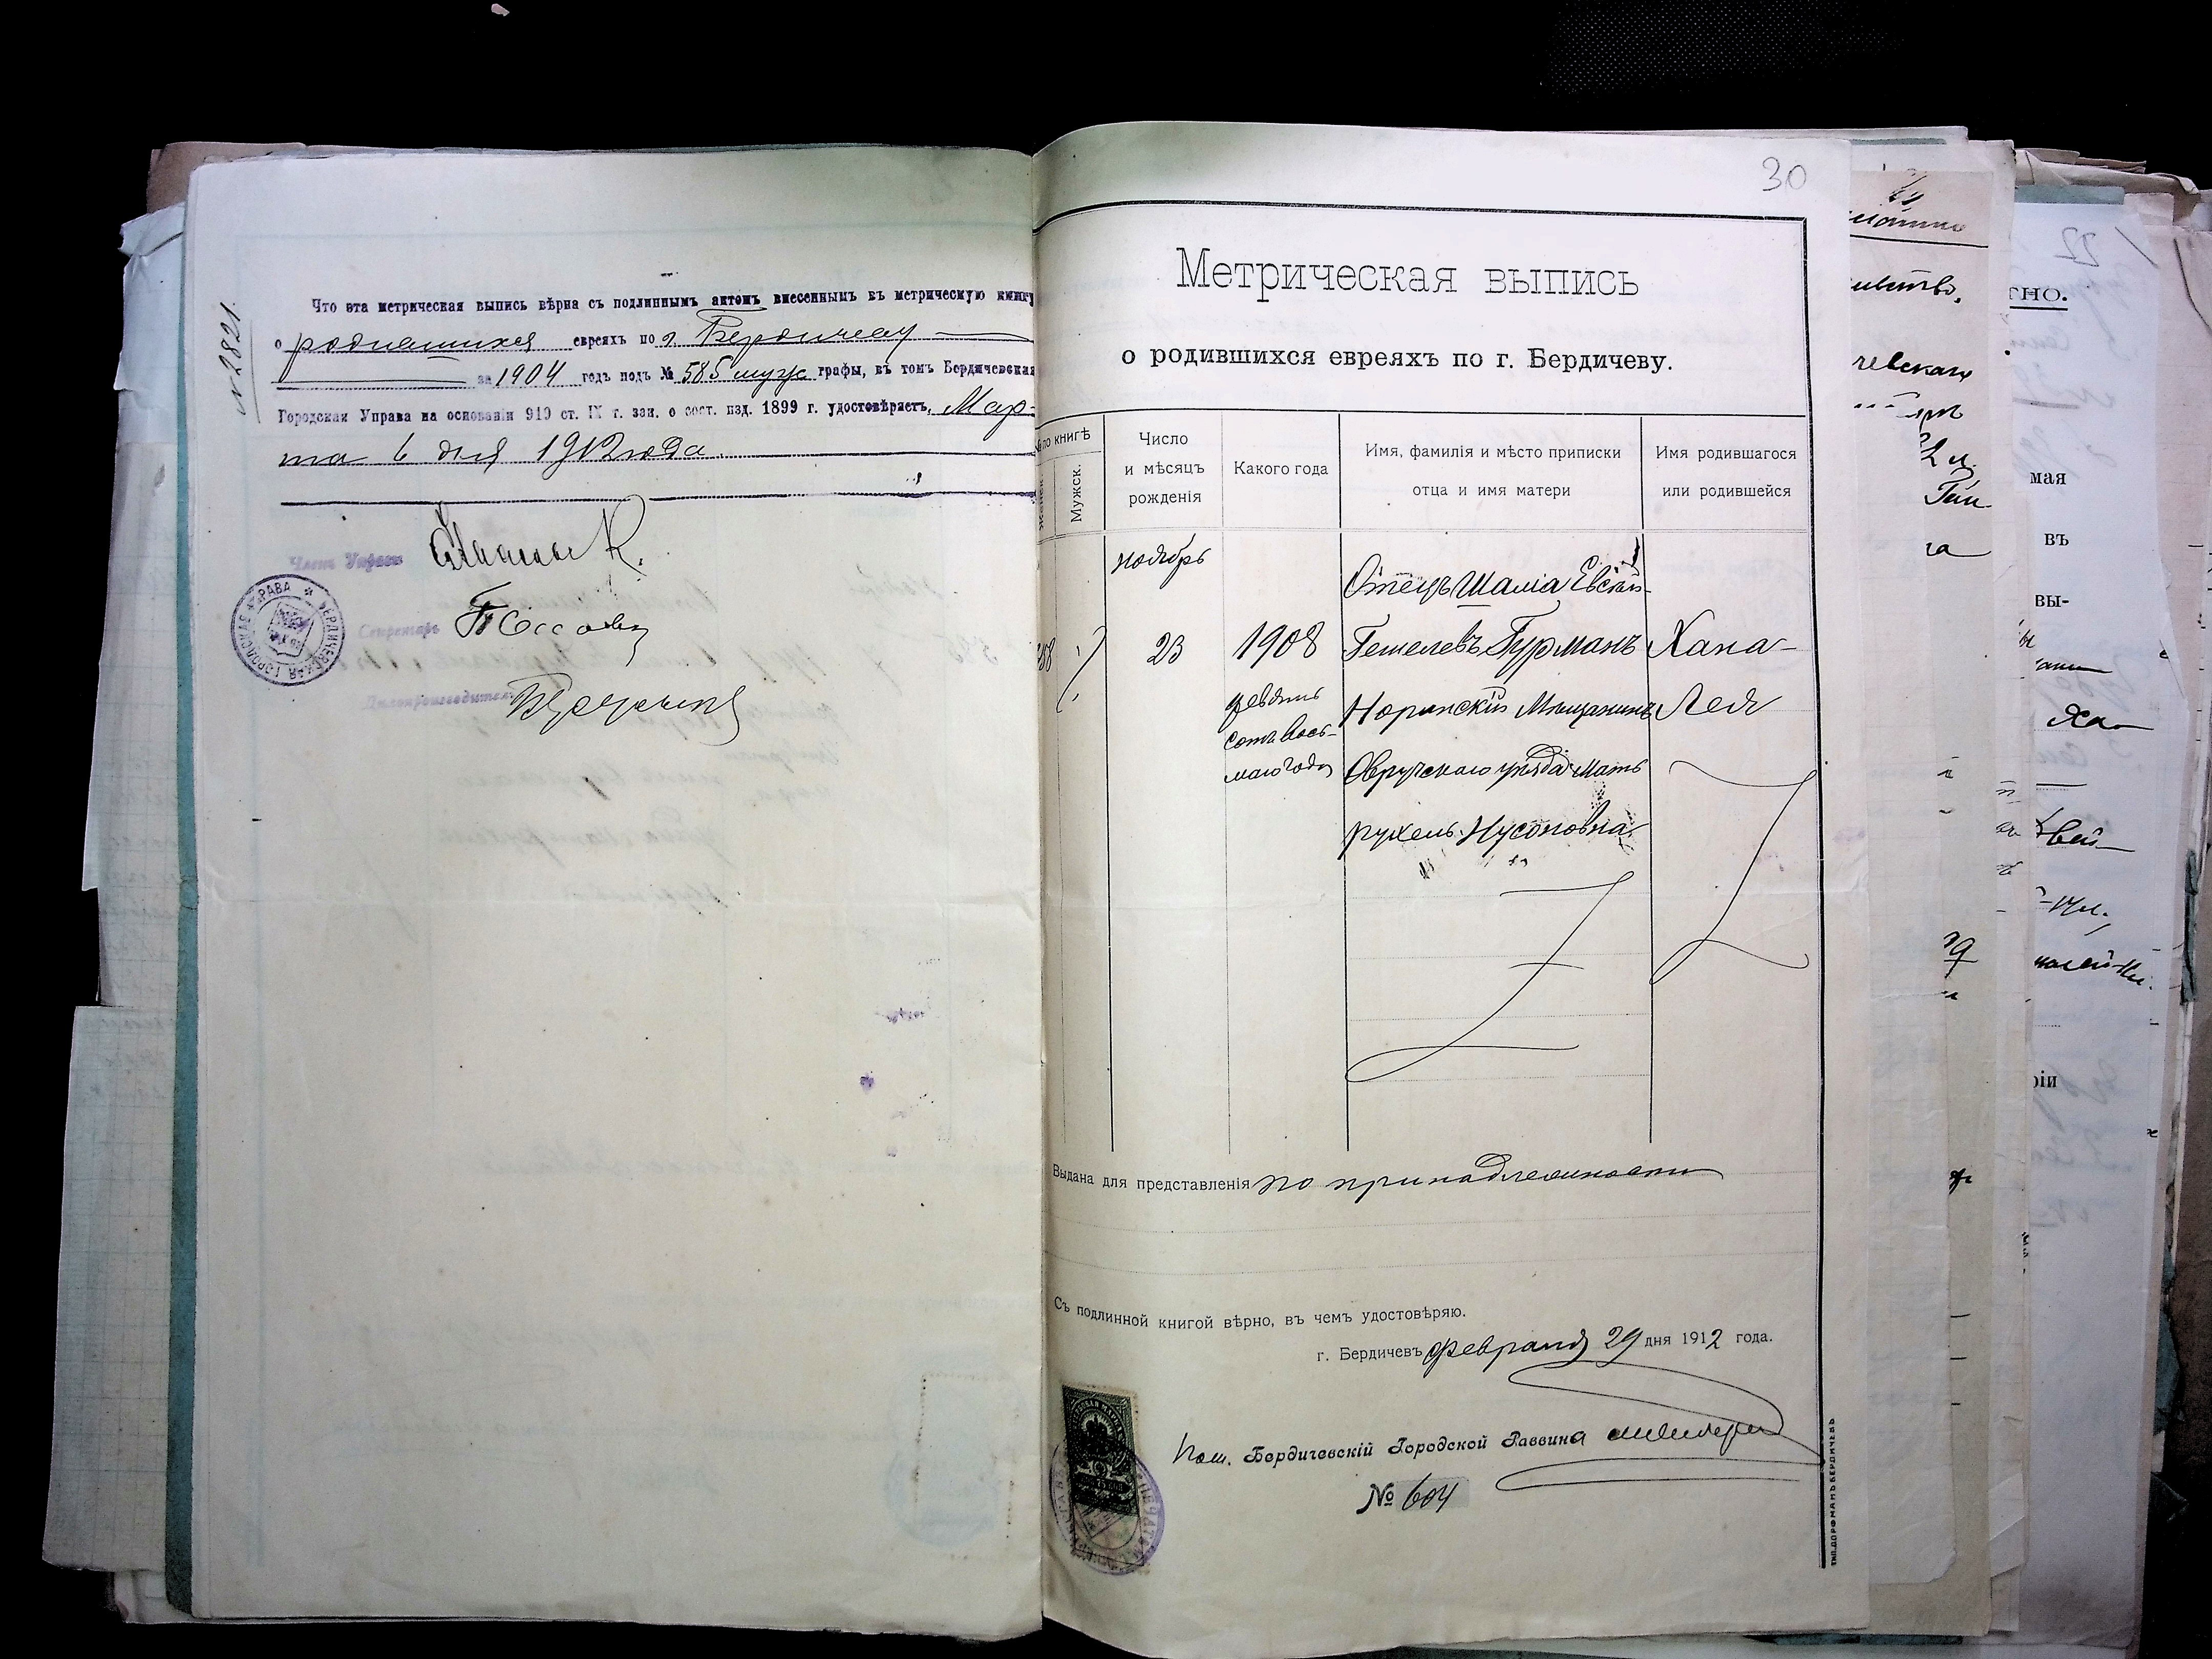 № 2821.
Что эта метрическая выпись вѣрна съ подлиннымъ актомъ внесеннымъ въ метрическую книгу
о родившихся евреяхъ по г. Бердичеву
за 1904 годъ подъ № 585 мужс графы, въ томъ Бердичевская
Городская Управа на основаніи 910 ст. IX т. зак. о сост. изд. 1899 г. удостовѣряетъ, Мар-
та 6 дня 1912 года.
Членъ Управы
Секретарь
Дѣлопроизводитель
БЕРДИЧЕВСКАЯ ГОРОДСКАЯ УПРАВА
30
Метрическая выпись
о родившихся евреяхъ по г. Бердичеву.
№ по книгѣ
Женск.
Мужск.
Число
и мѣсяцъ
рожденія
Какого года
Имя, фамилія и мѣсто приписки
отца и имя матери
Имя родившагося
или родившейся
ноябрь
23
1908
девять
сотъ вось-
маго года
Отецъ Шамa Евсей-
Гешелевъ Гурманъ
Норинскій Мѣщанинъ
Овручскаго уѣзда Мать
Рухель Нусоновна
Хана-
Лея
Выдана для представленія по принадлежности
Съ подлинной книгой вѣрно, въ чемъ удостовѣряю.
г. Бердичевъ Февраля 29 дня 1912 года.
Пом. Бердичевскій Городской Раввина
№ 604
ТИП. ДОРФМАНЪ БЕРДИЧЕВЪ
22
ТНО.
мая
въ
вы-
ріи